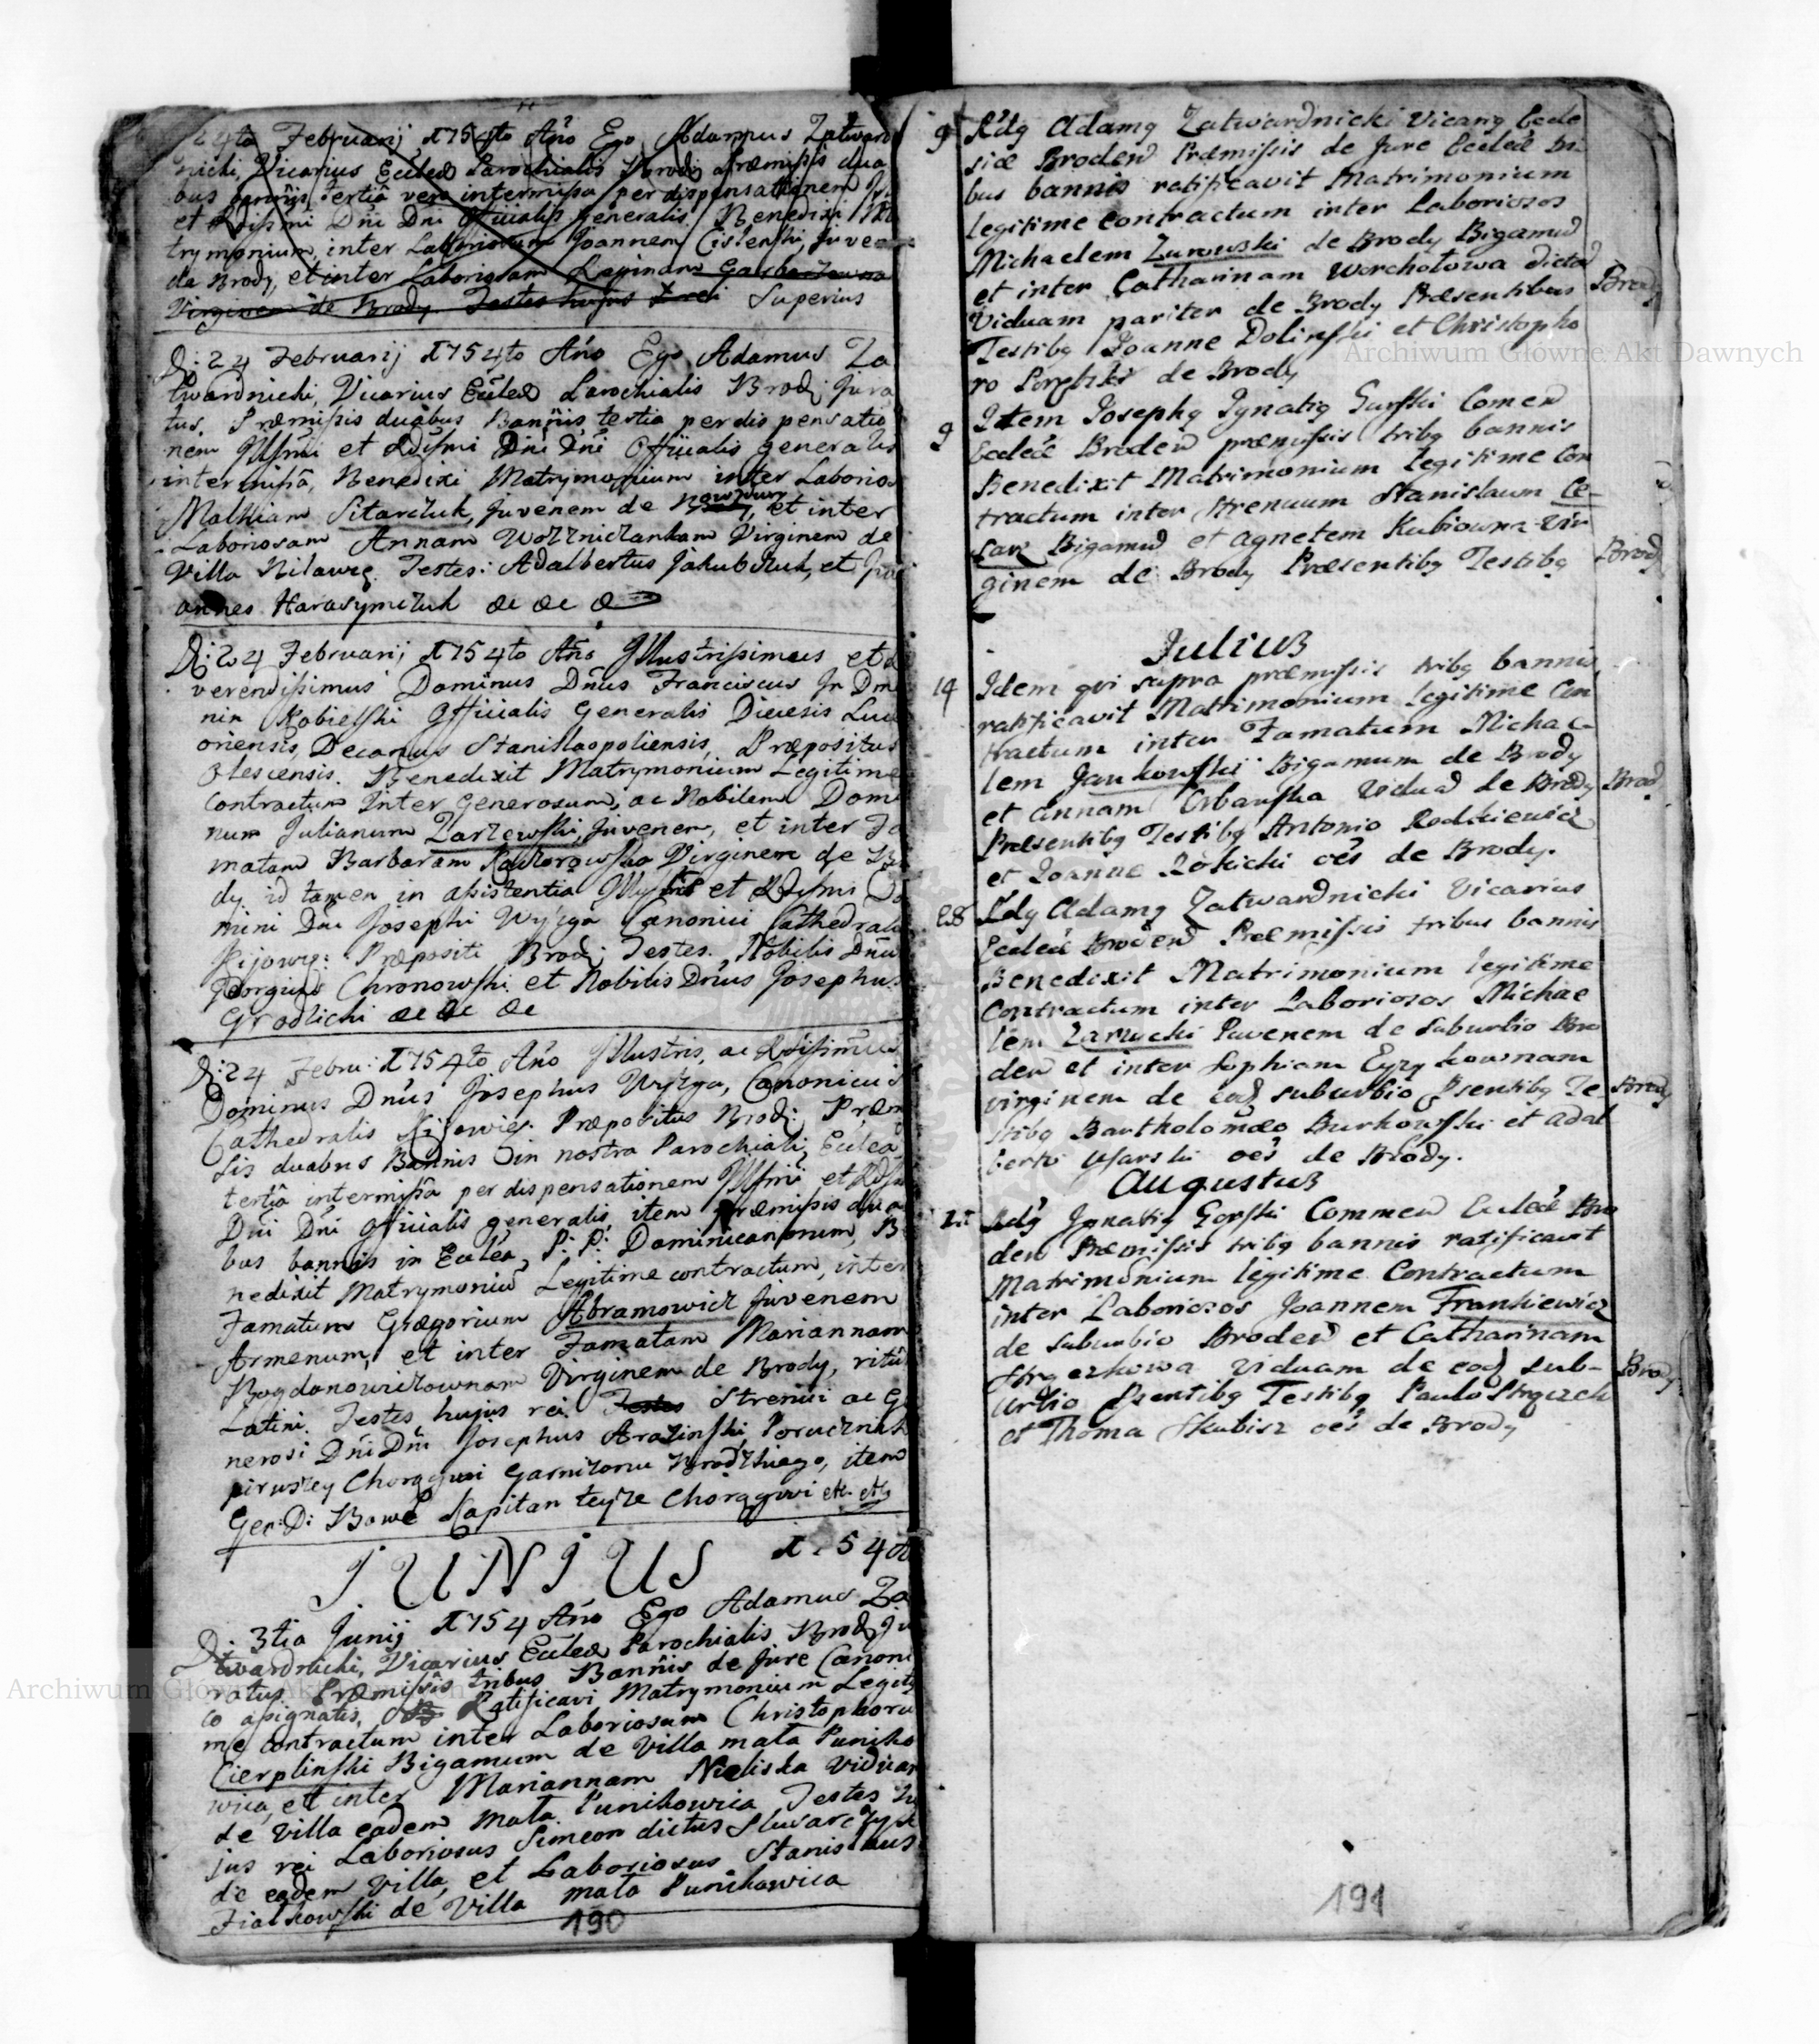 24to Februarij 1754to Año Ego Adamus Zatward
nicki, Vicarius Eccleæ Parochialis Brod: Præmissis dua
bus bannis, tertiâ vero intermissa per dispensationem
et Rdissimi Dni Dni Officialis Generalis Benedixi Ma
trymonium, inter Laboriosum Joannem Cislenski, juvenem
de Brody, et inter Laboriosam Reginam
Virginem de Brody. Testes hujus rei Superius
D: 24 Februarij 1754to Año Ego Adamus Za
twardnicki, Vicarius Eccleæ Parochialis Brod: Jura
tus. Præmissis duabus Bannis, tertia per dispensatio
nem Illsmi et Rdssmi Dni Dni Officialis Generalis
intermissâ, Benedixi Matrymonium inter Laborios
Mathiam Sitarczuk, juvenem de et inter
Laboriosam Annam Woźniczankam Virginem de
Villa Testes: Adalbertus Jakubczuk, et Jo
annes Harasymczuk &c &c &
D: 24 Februarij 1754to Año Illustrissimus et R
verendissimus Dominus Dnus Franciscus
nin Kobielski Officialis Generalis Diecesis Luc
oriensis, Decanus Stanislaopoliensis, Præpositus
Olescensis. Benedixit Matrymonium Legitime
Contractum Inter Generosum, ac Nobilem Domi
num Julianum Zarzewski, juvenem, et inter Fa
matam Barbaram Virginem de Bro
dy, id tamen in assistentia et Rdssmi Do
mini Dni Josephi Wyżga Canonici Cathedralis
Kijowię: Præpositi Brod: Testes. Nobilis Dnus
Georgius Chronowski et Nobilis Dnus Josephus
Grodlicki &c &c &c
D: 24 Febru: 1754to Año Illustris, ac Rdissimus
Dominus Dnus Josephus Wyżga, Canonicus
Cathedralis Kijowię: Præpositus Brod: Præm
sis duabus Bannis in nostra Parochiali, Ecclea
tertiâ intermissâ per dispensationem Illsmi et Rdssm
Dni Dni Officialis generalis, item præmissis dua
bus bannis in Ecclea P: P: Dominicanorum, B
nedixit Matrymoniu Legitime contractum, inter
Famatum Gregorium Abramowicz juvenem
Armenum, et inter Famatam Mariannam
Bogdanowiczownam Virginem de Brody, ritûs
Latini. Testes hujus rei Strenui ac Ge
nerosi Dni Dni Josephus Porucznik
pirwszey Chorągwi Garnizonu Brodzkiego, item
Gen: D: Kapitan teyże Chorągwi etc etc
JUNIUS 1754to
D: 3tia Junij 1754 Año Ego Adamus Za
twardnicki, Vicarius Eccleæ Parochialis Brod: Ju
ratus. Præmissis tribus Bannis de jure Canoni
co assignatis, Ratificavi Matrymonium Legity
me contractum inter Laboriosum Christophoru
Cierplinski Bigamum de Villa mała Puniko
wica, et inter Mariannam Nieliska Viduam
de Villa eadem mała Punikowica Testes hu
jus rei Laboriosus Simeon dictus
de eadem Villa, et Laboriosus Stanislaus
Fiałkowski de Villa mała Punikowica
190
9 Rdg Adamg Zatwardnicki Vicarig Eccle
siæ Broden Præmissis de Jure Eccleæ tri
bus bannis ratificavit Matrimonium
legitime contractum inter Laboriosos
Michaelem Zurowski de Brody Bigamu
et inter Catharinam Worchołowa dicta Brody
Viduam pariter de Brody Præsentibus
Testibg Joanne Dolinski et Christopho
ro de Brody
9 Item Josephg Ignatig Gurski Comen
Eccleæ Broden præmissis tribg bannis
Benedixit Matrimonium legitime Con
tractum inter Strenuum Stanislaum Ce-
sarz Bigamu et Agnetem Kubiowna Vir
ginem de Brody Præsentibg Testibg Brody
Julius
14 Idem qvi supra præmissis tribg bannis
ratificavit Matrimonium legitime Con
tractum inter Famatum Michae
lem Jankowski Bigamum de Brody
et Annam Orbanska Vidua de Brody Brod
Præsentibg Testibg Antonio
et Joanne Rokicki oes de Brody.
28 Rdg Adamg Zatwardnicki Vicarius
Eccleæ Broden Præmissis tribus bannis
Benedixit Matrimonium legitime
Contractum inter Laboriosos Michae
lem Zarucki Juvenem de Suburbio Bro
den et inter Sophiam
virginem de eod suburbio Psentibg Te Brody
stibg Bartholomæo Burkowski et Adal
berto oes de Brody.
Augustus
Rdg Ignatig Gorski Commen Eccleæ Bro
den Præmissis tribg bannis ratificavit
Matrimonium legitime Contractum
inter Laboriosos Joannem Frankiewicz
de suburbio Broden et Catharinam
viduam de eod sub- Brody
urbio Psentibg Testibg Paulo
et Thoma Skubisz oes de Brody
191
Archiwum Główne Akt Dawnych
Archiwum Główne Akt Dawnych